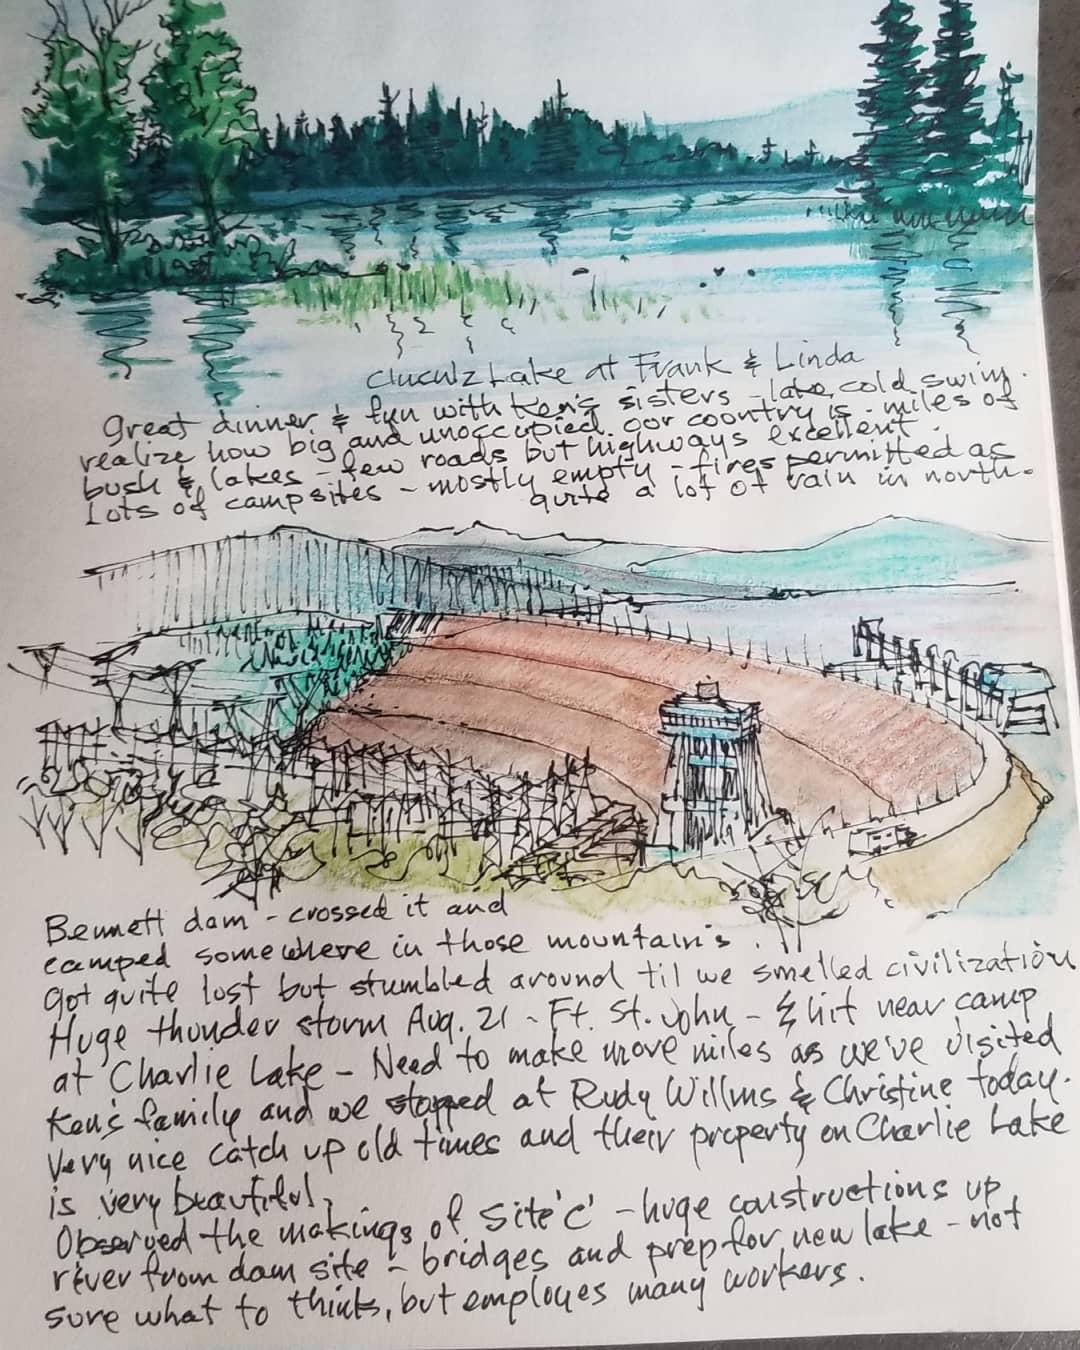 Cluculz Lake at Frank & Linda
Great dinner & fun with Ken's sisters - lake, cold swim.
realize how big and unoccupied our country is - miles of
bush & lakes - few roads but highways excellent.
Lots of campsites - mostly empty - fires permitted as
quite a lot of rain in north.
Bennett dam - crossed it and
camped somewhere in those mountains.
Got quite lost but stumbled around til we smelled civilization
Huge thunder storm Aug. 21 - Ft. St. John - & hit near camp
at Charlie Lake - Need to make more miles as we've visited
Ken's family and we stopped at Rudy Willms & Christine today.
Very nice catch up old times and their property on Charlie Lake
is very beautiful.
Observed the makings of Site 'C' - huge constructions up
river from dam site - bridges and prep for new lake - not
sure what to think, but employes many workers.